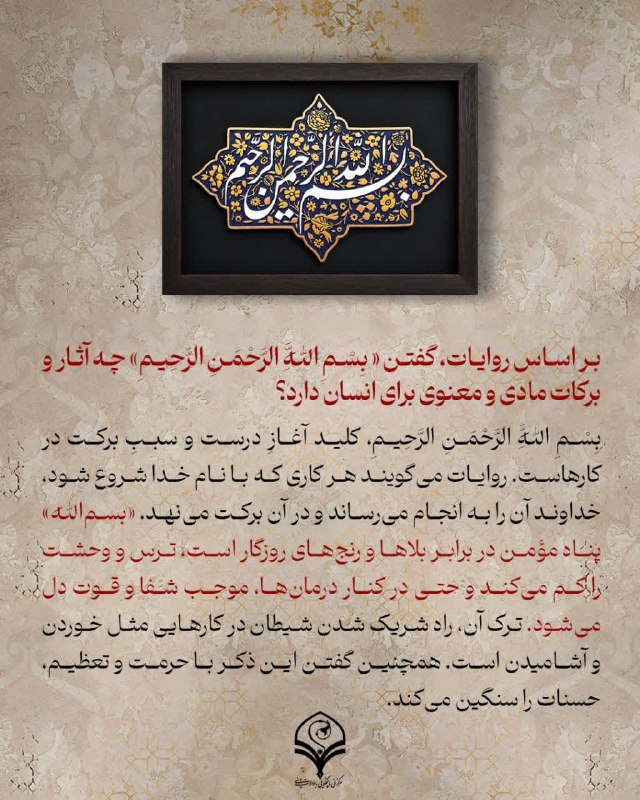 بسم الله الرحمن الرحیم
بر اساس روایات، گفتن «بِسْمِ اللهِ الرَّحْمَنِ الرَّحیم» چه آثار و
برکات مادی و معنوی برای انسان دارد؟
بِسْمِ اللهِ الرَّحْمَنِ الرَّحیم، کلید آغازِ درست و سببِ برکت در
کارهاست. روایات می‌گویند هر کاری که با نام خدا شروع شود،
خداوند آن را به انجام می‌رساند و در آن برکت می‌نهد. «بسم‌الله»
پناه مؤمن در برابر بلاها و رنج‌های روزگار است، ترس و وحشت
را کم می‌کند و حتی در کنار درمان‌ها، موجب شفا و قوت دل
می‌شود. ترک آن، راه شریک شدن شیطان در کارهایی مثل خوردن
و آشامیدن است. همچنین گفتن این ذکر با حرمت و تعظیم،
حسنات را سنگین می‌کند.